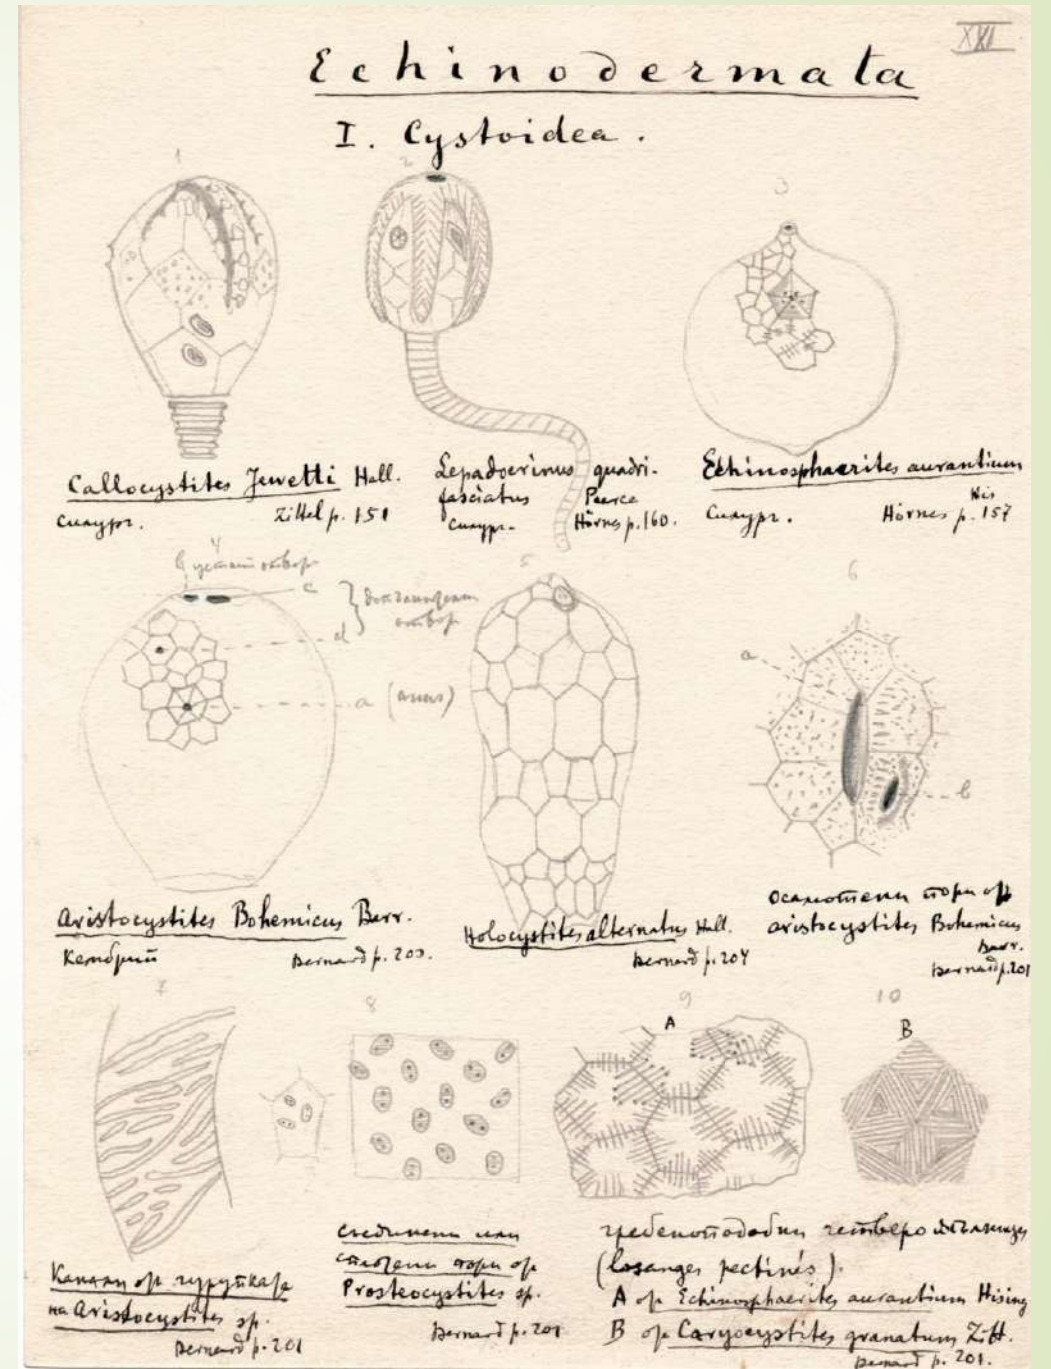 XXI
Echinodermata
I. Cystoidea.
1
2
3
Callocystites Jewetti Hall.
Силург.
Zittel p. 151
Lepadocrinus quadri-
fasciatus Pearce
Силург.
Hörnes p. 160.
Echinosphaerites aurantium
His
Силург.
Hörnes p. 157
4
b устенъ отвор
c
d
отвор
a (anus)
Aristocystites Bohemicus Barr.
Кембрий
Bernard p. 200.
5
Holocystites alternatus Hall.
Bernard p. 204
6
a
b
пори от
aristocystites Bohemicus
Barr.
Bernard p. 201
7
Канали от черупката
на Aristocystites sp.
Bernard p. 201
8
съединени или
пори от
Prosteocystites sp.
Bernard p. 201
9
A
10
B
гребеноподобни
(losanges pectinés).
A от Echinosphaerites aurantium Hising
B от Caryocystites granatum Zitt.
Bernard p. 201.